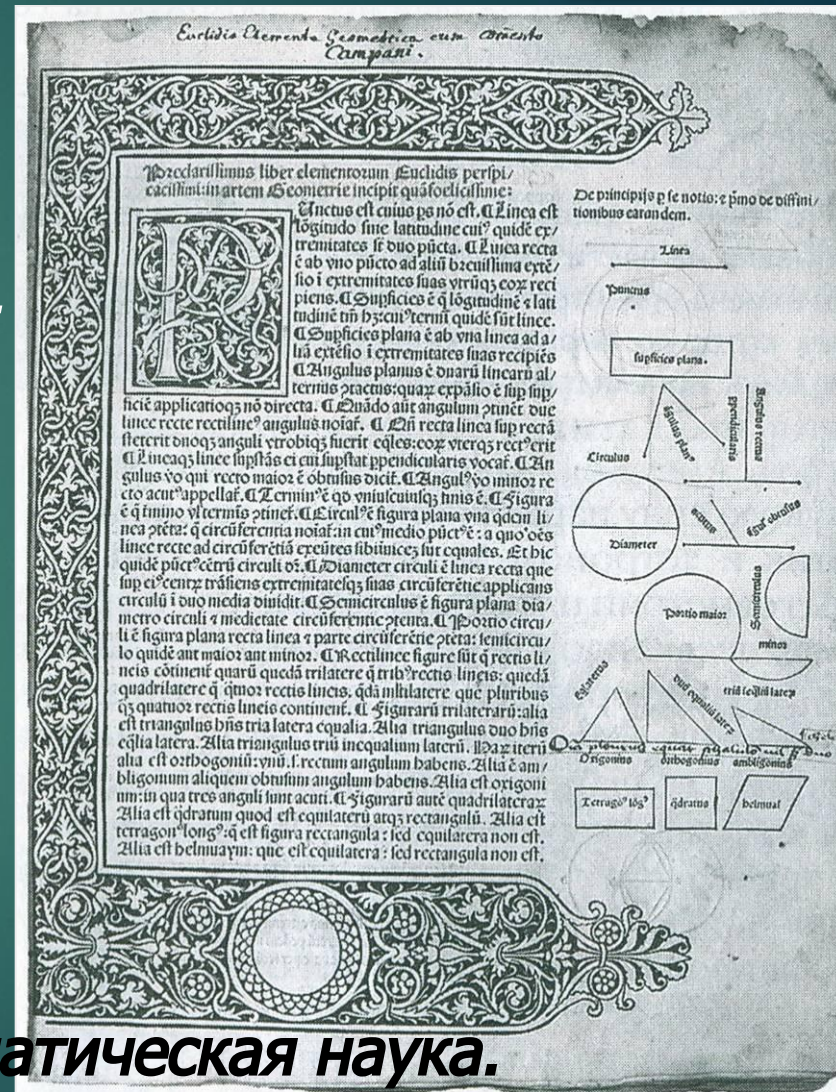 Euclidis Elementa Geometrica cum coмento
Campani.
Preclarissimus liber elementorum Euclidis perspi/
cacissimi: in artem Geometrie incipit quãfoelicissime:
PUnctus est cuius ps nõ est. ¶ Linea est
lõgitudo sine latitudine cuiꝰ quidẽ ex/
tremitates sr duo pũcta. ¶ Linea recta
ẽ ab vno pũcto ad aliũ breuissima extẽ/
sio i extremitates suas vtrũqꝫ eoꝝ reci
piens. ¶ Supficies ẽ q̃ lõgitudinẽ ⁊ lati
tudinẽ tm̃ hꝫ: cuiꝰ termi quidẽ sũt linee.
¶ Supficies plana ẽ ab vna linea ad a/
liã extẽsio i extremitates suas recipiẽs
¶ Angulus planus ẽ duarũ linearũ al/
ternus ꝯtactus: quaꝝ expãsio ẽ sup sup/
ficiẽ applicatioqꝫ nõ directa. ¶ Quãdo aũt angulum ꝯtinẽt due
linee recte rectilineꝰ angulus noiať. ¶ Qñ recta linea sup rectã
steterit duoqꝫ anguli vtrobiqꝫ fuerit eq̃les: eoꝝ vterqꝫ rectꝰerit
¶ Lineaqꝫ linee supstãs ei cui supstat ppendicularis vocať. ¶ An
gulus vo qui recto maior ẽ obtusus dicit. ¶ Angulꝰvo minor re
cto acutꝰappellať. ¶ Terminꝰẽ qd vniuscuiusqꝫ finis ẽ. ¶ Figura
ẽ q̃ tmino vl terminis ꝯtineť. ¶ Circulꝰẽ figura plana vna q̃dem li/
nea ꝯtẽta: q̃ circũferentia noiať: in cuiꝰmedio pũctꝰẽ: a quoꝰoẽs
linee recte ad circũferẽtiã exeũtes sibiinuicẽ sut equales. Et hic
quidẽ pũctꝰcẽtrũ circuli dř. ¶ Diameter circuli ẽ linea recta que
sup eiꝰcentꝝ trãsiens extremitatesqꝫ suas circũferẽtie applicans
circulũ i duo media diuidit. ¶ Semicirculus ẽ figura plana dia/
metro circuli ⁊ medietate circũferentie ꝯtenta. ¶ Portio circu/
li ẽ figura plana recta linea ⁊ parte circũferẽtie ꝯtẽta: semicircu/
lo quidẽ aut maior aut minor. ¶ Rectilinee figure sũt q̃ rectis li/
neis cõtinent quarũ quedã trilatere q̃ tribꝰrectis lineis: quedã
quadrilatere q̃ q̃tuor rectis lineis. q̃dã mltilatere que pluribus
qꝫ quatuor rectis lineis continent. ¶ Figurarũ trilaterarũ: alia
est triangulus hñs tria latera equalia. Alia triangulus duo hñs
eq̃lia latera. Alia triangulus triũ inequalium laterũ. Haꝝ iterũ
alia est orthogoniũ: vnũ. s. rectum angulum habens. Alia ẽ am/
bligonium aliquem obtusum angulum habens. Alia est oxigoni
um: in qua tres anguli sunt acuti. ¶ Figurarũ autẽ quadrilateraꝝ
Alia est q̃dratum quod est equilaterũ atqꝫ rectangulũ. Alia est
tetragonꝰlongꝰ: q̃ est figura rectangula: sed equilatera non est.
Alia est helmuaym: que est equilatera: sed rectangula non est.
De principijs p se notis: ⁊ pmo de diffini/
tionibus earandem.
Linea
Punctus
supficies plana.
Circulus
ãgulus planꝰ
ppendicularis
Angulus rectus
Diameter
acutus
ãgulꝰ obtusus
Portio maior
Semicirculus
minor
duũ equaliũ lateꝝ
triũ ĩeq̃liũ lateꝝ
Oxigonius
orthogonius
ambligonius
Tetragoꝰ lõgꝰ
q̃dratus
helmual
атическая наука.